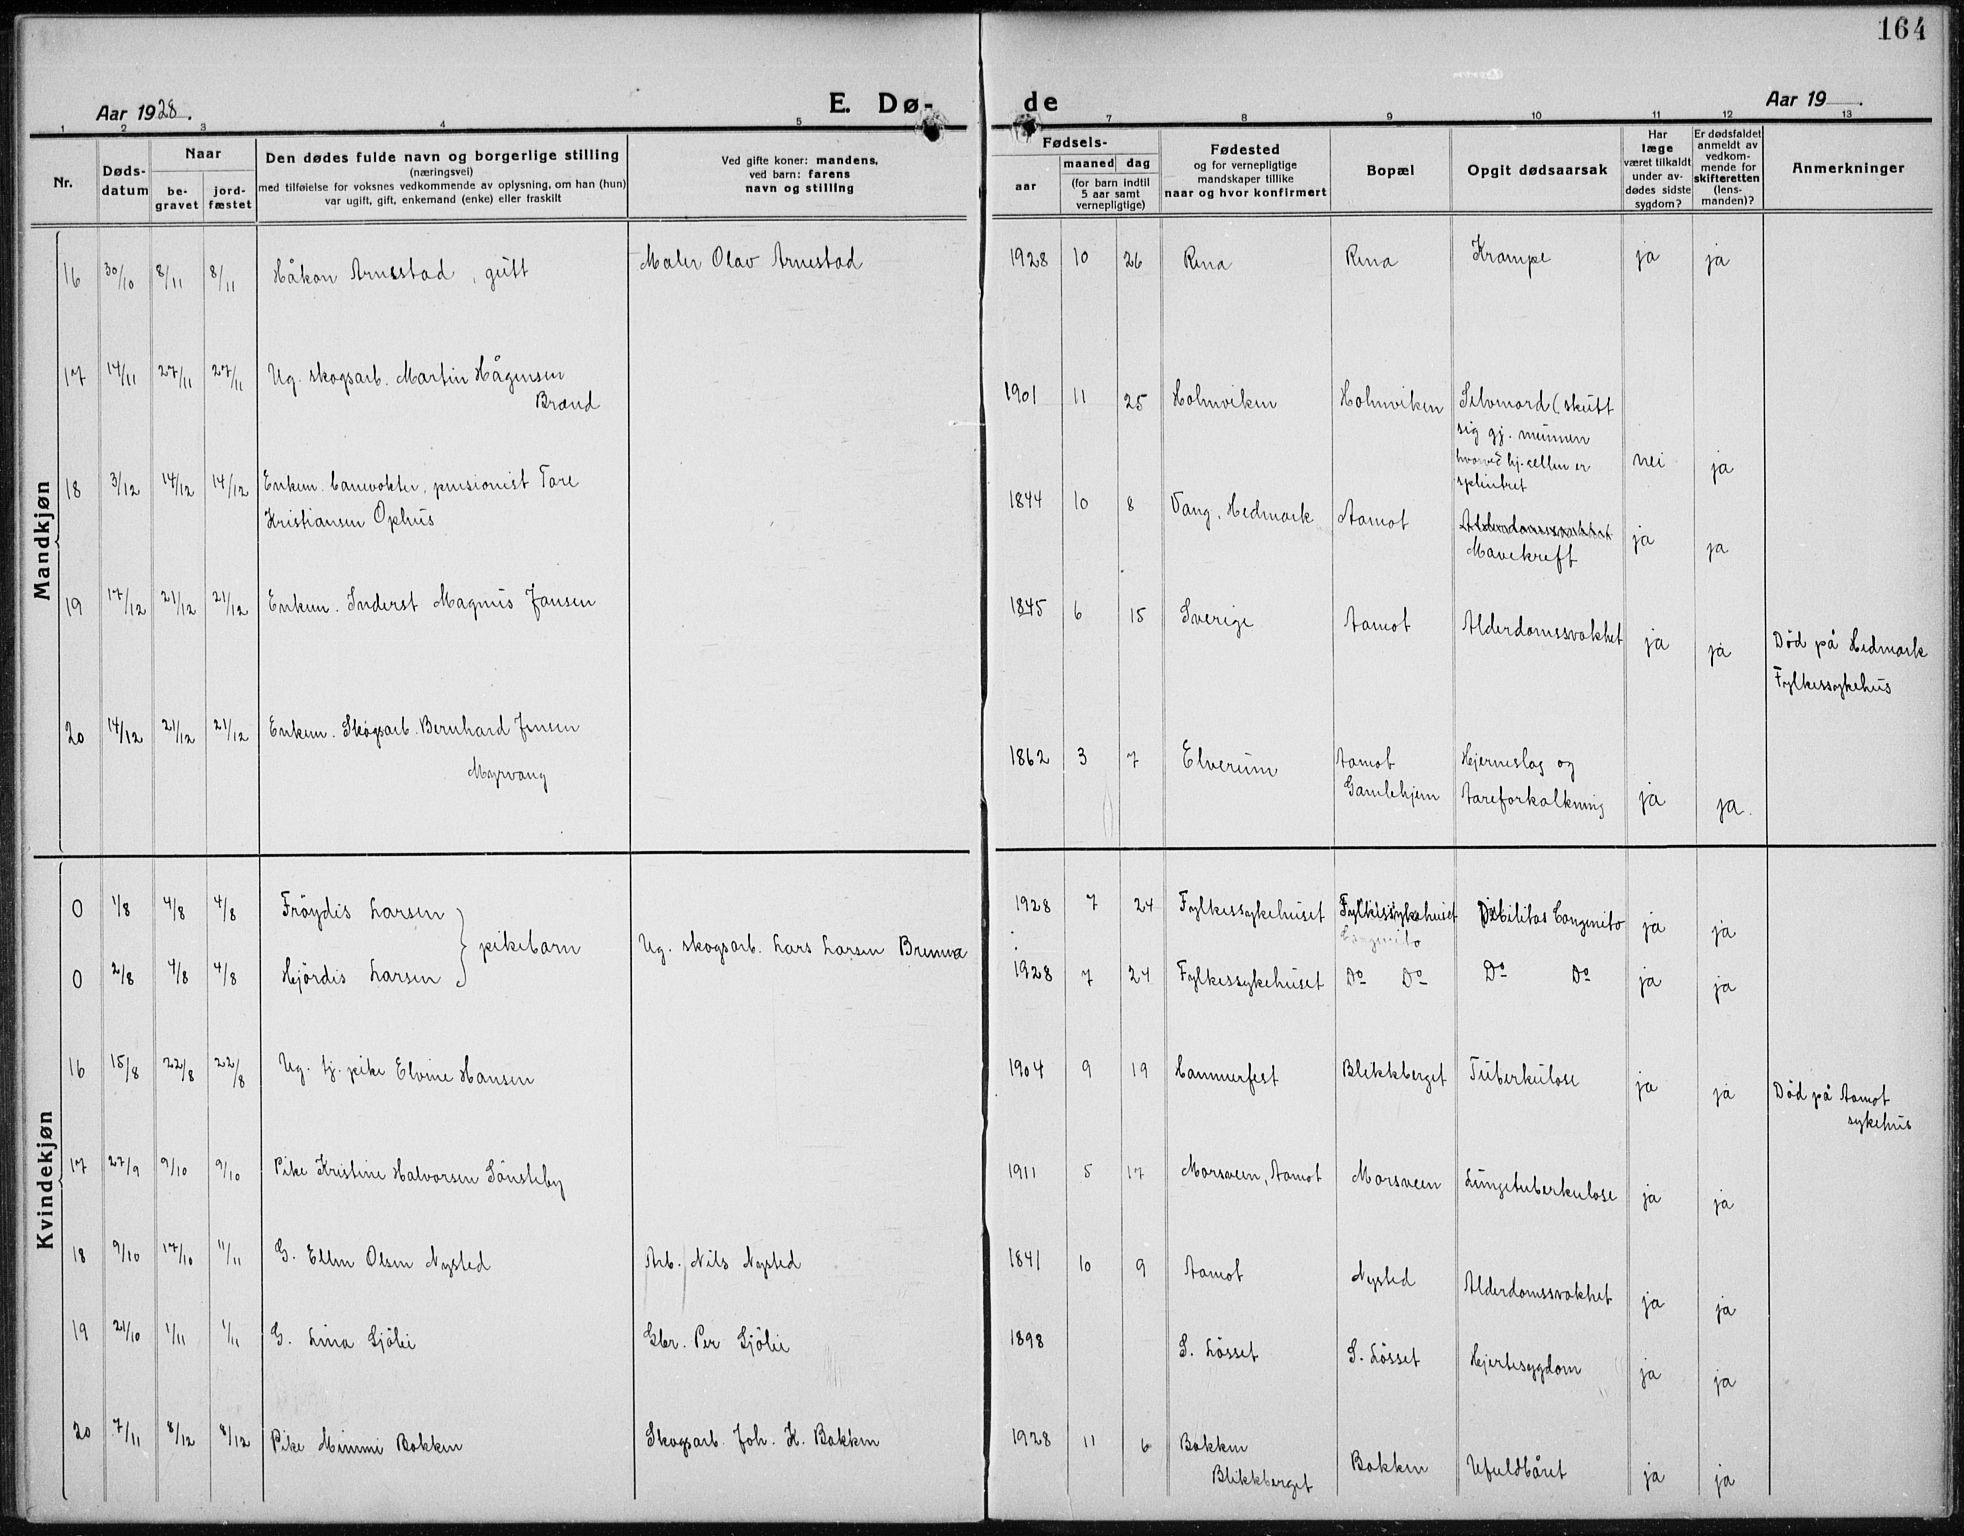 164
Aar 1928.
E. Dø-
de
Aar 19 .
1 2 3 4 5 7 8 9 10 11 12 13
Nr.
Døds-
datum
Naar
be-
gravet
jord-
fæstet
Den dødes fulde navn og borgerlige stilling
(næringsvei)
med tilføielse for voksnes vedkommende av oplysning, om han (hun)
var ugift, gift, enkemand (enke) eller fraskilt
Ved gifte koner: mandens,
ved barn: farens
navn og stilling
Fødsels-
aar
maaned dag
(for barn indtil
5 aar samt
vernepligtige)
Fødested
og for vernepligtige
mandskaper tillike
naar og hvor konfirmert
Bopæl
Opgit dødsaarsak
Har
læge
været tilkaldt
under av-
dødes sidste
sygdom?
Er dødsfaldet
anmeldt av
vedkom-
mende for
skifteretten
(lens-
manden)?
Anmerkninger
Mandkjøn
16 30/10 8/11 8/11 Håkon Arnestad, gutt Maler Olav Arnestad 1928 10 26 Rena Rena Krampe ja ja
17 14/11 27/11 27/11 Ug. skogsarb. Martin Hågensen
Brænd
1901 11 25 Holmviken Holmviken Selvmord (skutt
sig gj. munnen
hvorved hj.cellen er
splintret
nei ja
18 3/12 14/12 14/12 Enkem. banevokter, pensionist Tore
Kristiansen Ophus
1844 10 8 Vang, Hedmark Aamot Alderdomssvakhet
Mavekreft
ja ja
19 17/12 21/12 21/12 Enkem. Inderst Magnus Jansen 1845 6 15 Sverige Aamot Alderdomssvakhet ja ja Död på Hedmark
Fylkessykehus
20 14/12 21/12 21/12 Enkem. Skogsarb. Bernhard Jensen
Myrvang
1862 3 7 Elverum Aamot
Gamlehjem
Hjerneslag og
Aareforkalkning
ja ja.
Kvindekjøn
0 1/8 4/8 4/8 Fröydis Larsen 1928 7 24 Fylkessykehuset Fylkessykehuset Debilitas Congenita ja ja
Congenita
} pikebarn Ug. skogsarb. Lars Larsen
0 2/8 4/8 4/8 Hjördis Larsen 1928 7 24 Fylkessykehuset Do Do Do Do ja ja
16 15/8 22/8 22/8 Ug. tj. pike Elvine Hansen 1904 9 19 Hammerfest Blikkberget Tuberkulose ja ja Död på Aamot
sykehus
17 27/9 9/10 9/10 Pike Kristine Halvorsen Sönsteby 1911 5 17 Morsveen, Aamot Morsveen Lungetuberkulose ja ja
18 9/10 17/10 11/11 G. Ellen Olsen Nysted Arb. Nils Nysted 1841 10 9 Aamot Nysted Alderdomssvakhet ja ja
19 21/10 1/11 1/11 G. Lina Sjölie Gbr. Per Sjölie 1898 S. Lösset S. Lösset Hjertesygdom ja ja
20 7/11 8/12 8/12 Pike Mimmi Bakken Skogsarb. Joh. H. Bakken 1928 11 6 Bakken
Blikkberget
Bakken Ufuldbåret ja ja